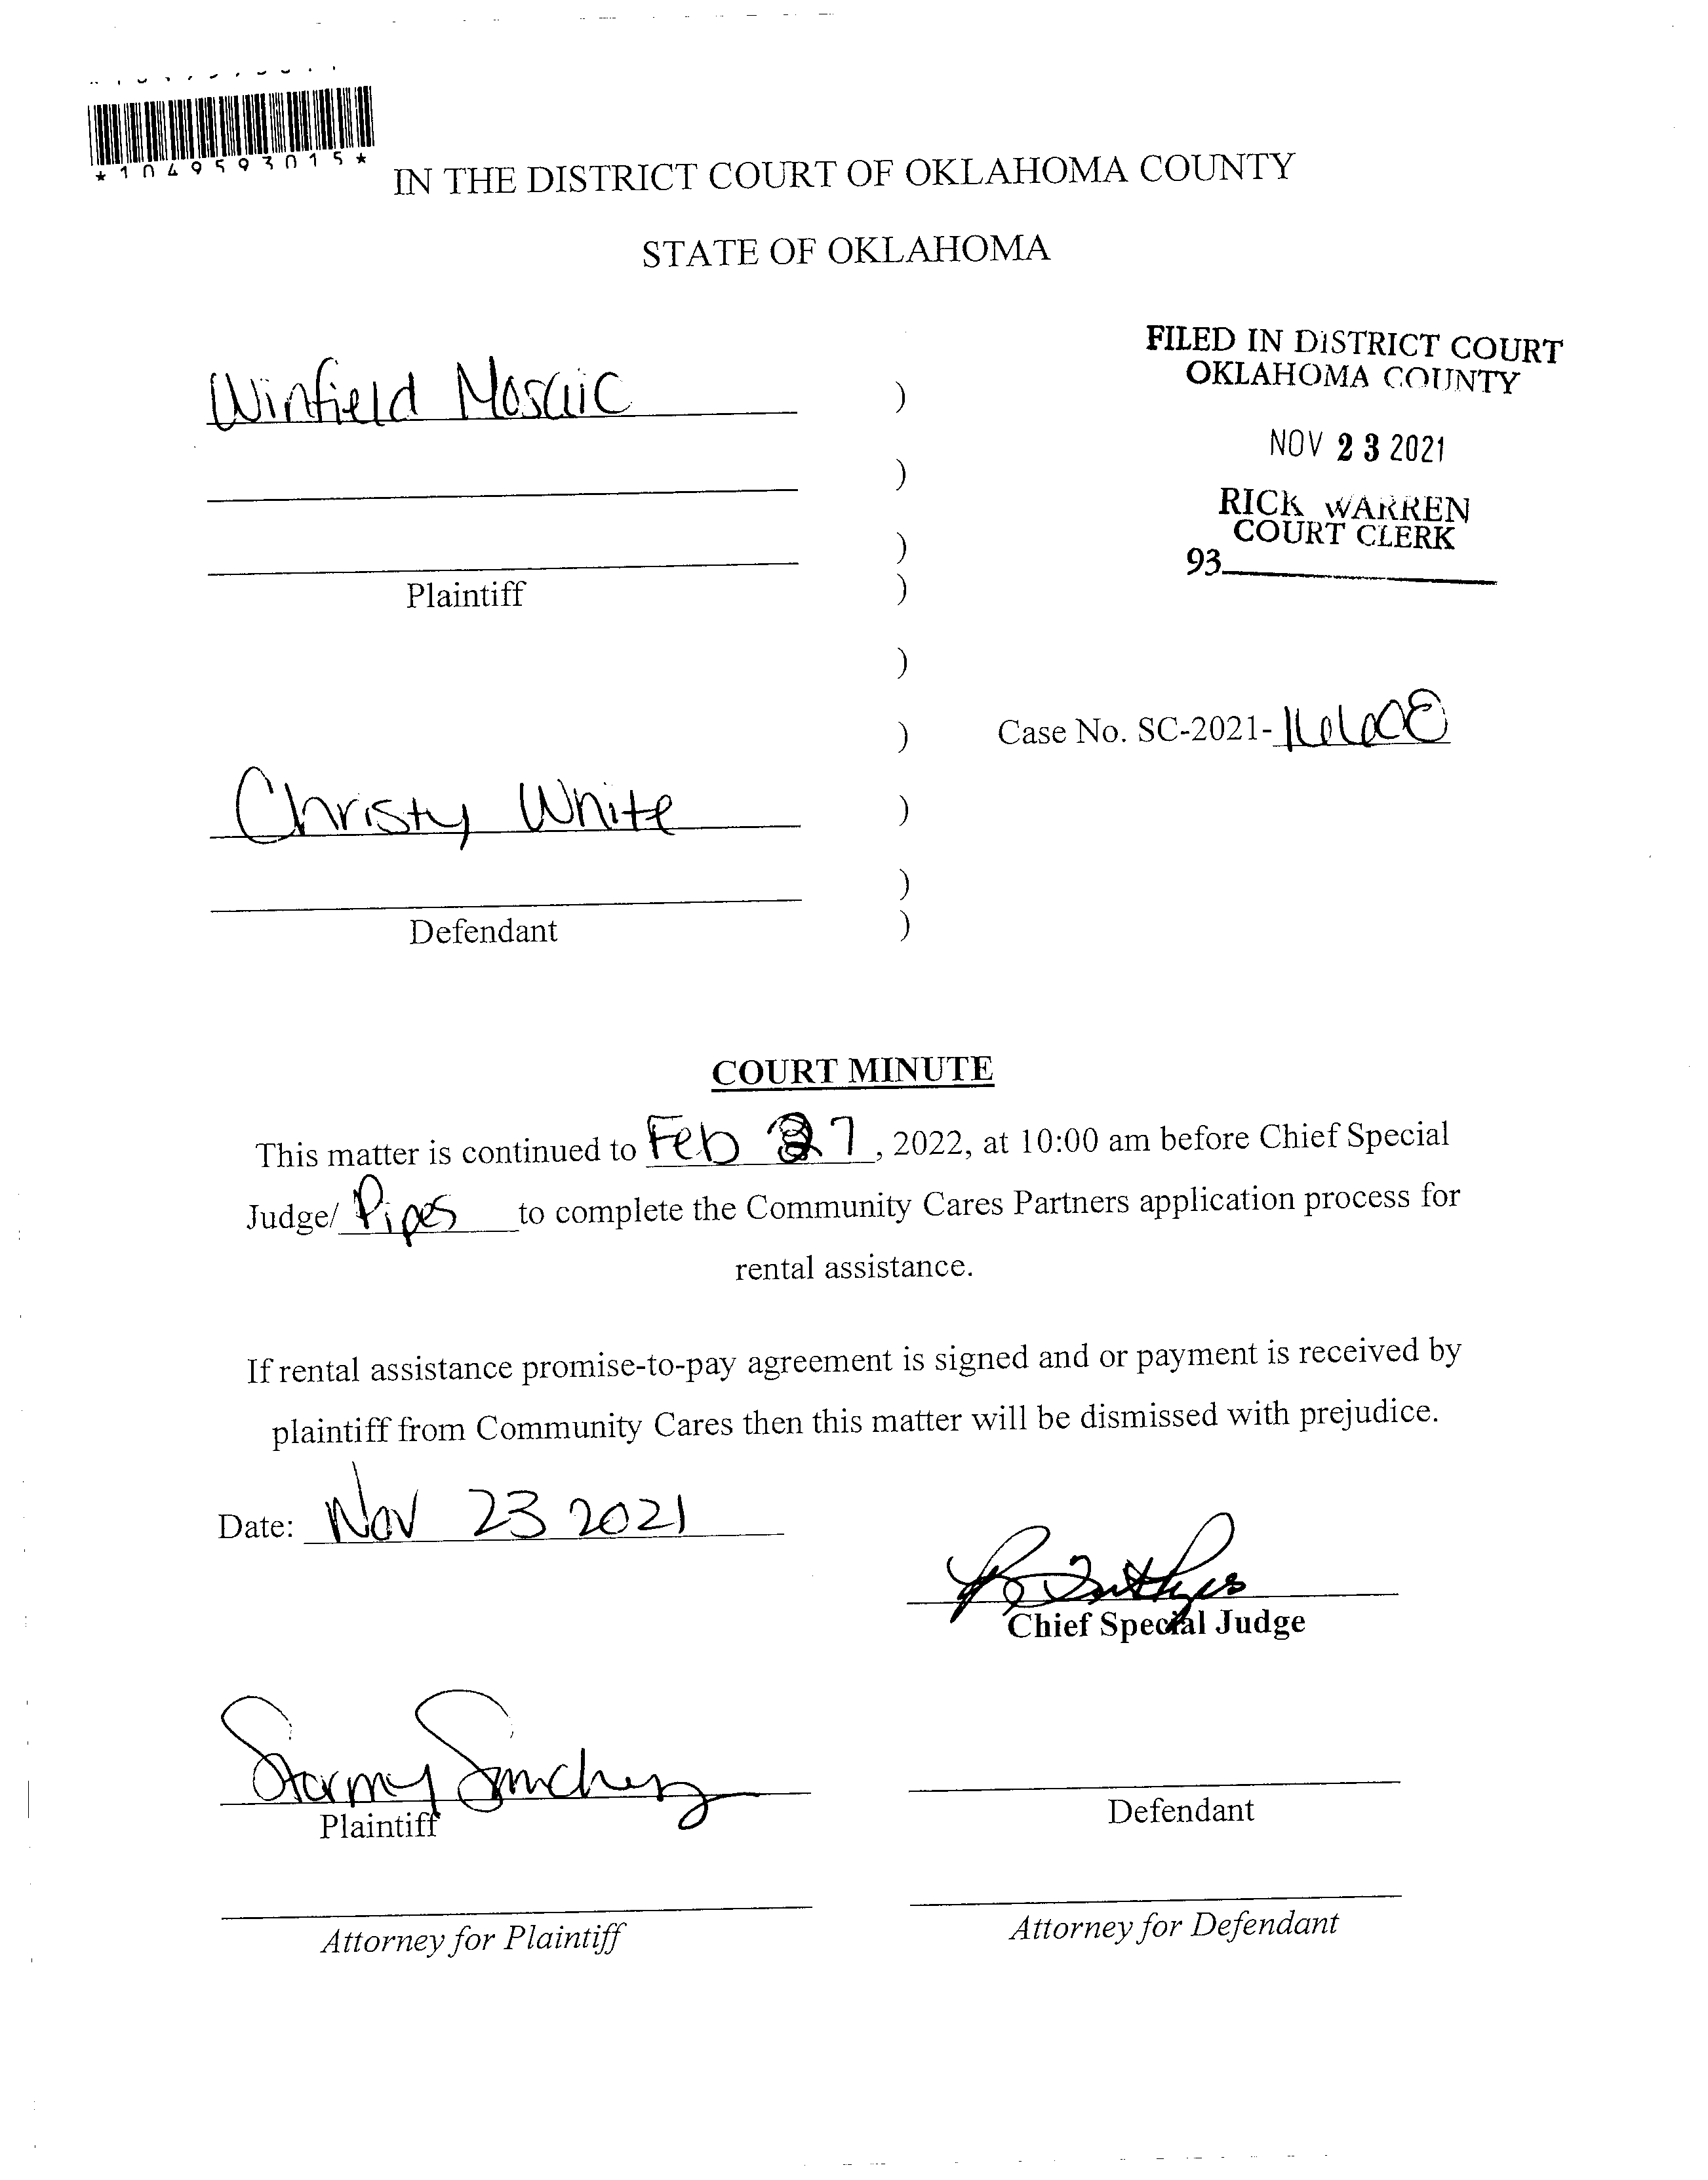 *1049593015*
IN THE DISTRICT COURT OF OKLAHOMA COUNTY
STATE OF OKLAHOMA
FILED IN DISTRICT COURT
OKLAHOMA COUNTY
NOV 23 2021
RICK WARREN
COURT CLERK
93
Winfield Mosaic )
)
)
Plaintiff )
)
) Case No. SC-2021-16608
Christy White )
)
Defendant )
COURT MINUTE
This matter is continued to Feb 7, 2022, at 10:00 am before Chief Special
Judge/ Pipes to complete the Community Cares Partners application process for
rental assistance.
If rental assistance promise-to-pay agreement is signed and or payment is received by
plaintiff from Community Cares then this matter will be dismissed with prejudice.
Date: Nov 23 2021
Chief Special Judge
Stormy Sanchez
Plaintiff
Defendant
Attorney for Plaintiff
Attorney for Defendant